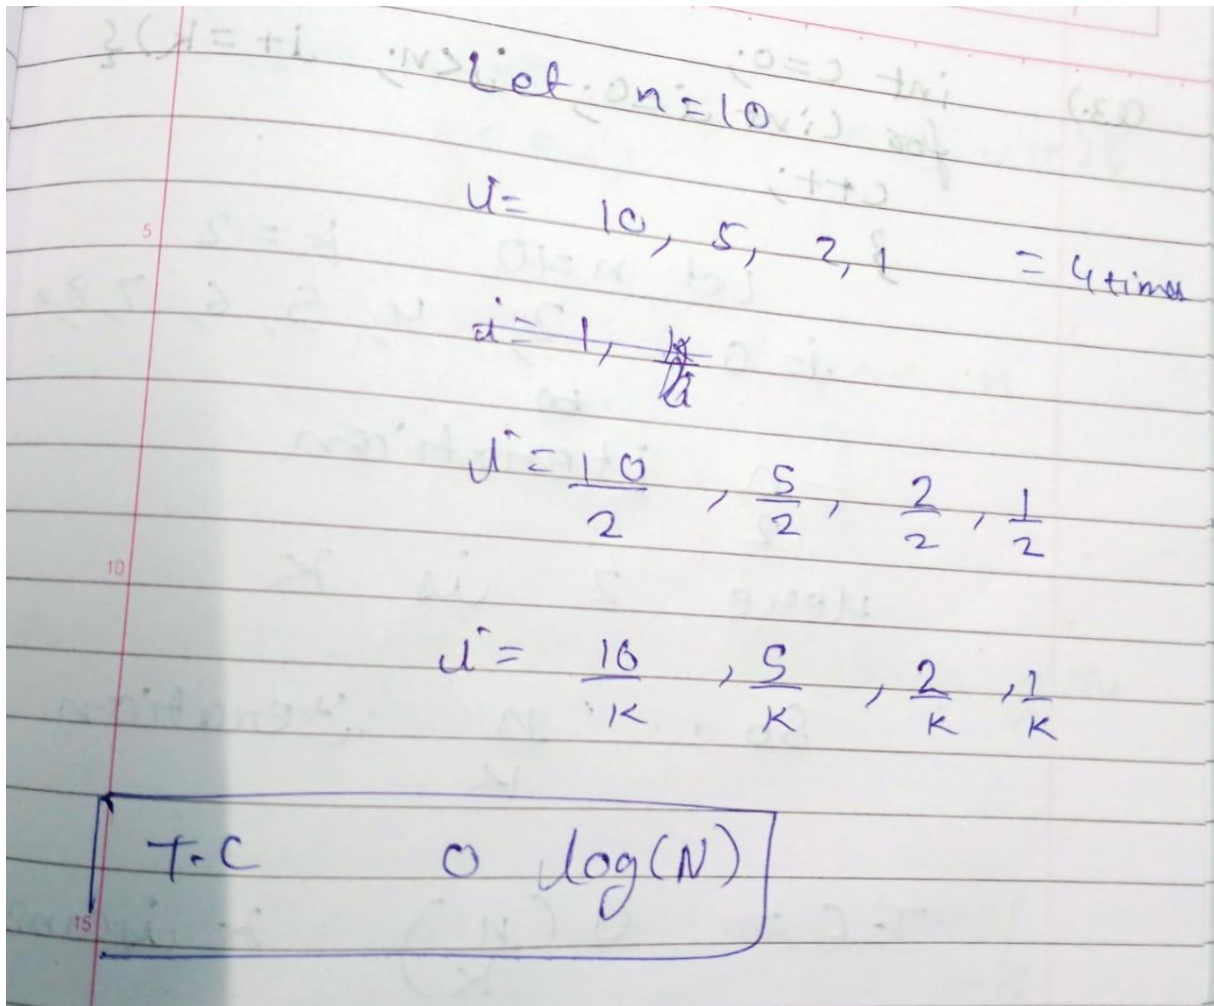 Let n=10
i= 10, 5, 2, 1 = 4 times
i = 10/2, 5/2, 2/2, 1/2
i = 10/K, 5/K, 2/K, 1/K
T.C O log(N)
5
10
15